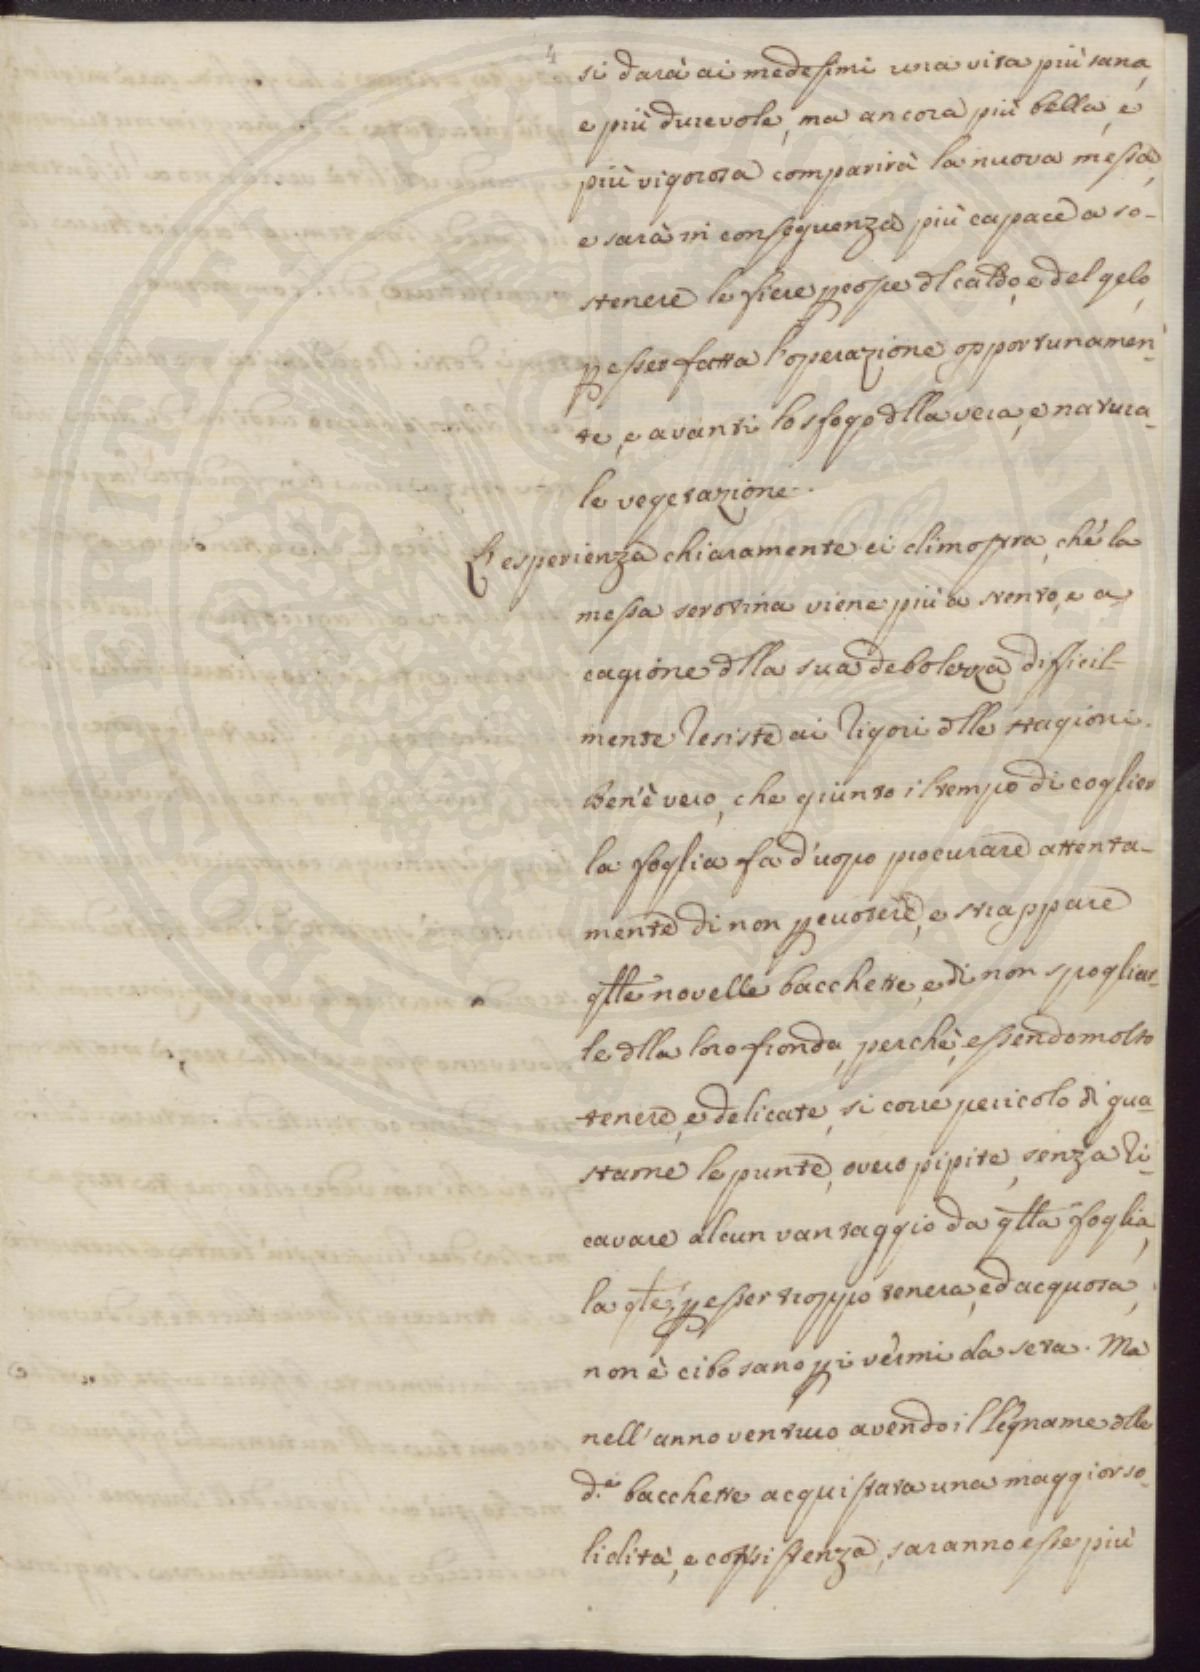 4
si darà ai medesimi una vita più sana,
e più durevole, ma ancora più bella, e
più vigorosa comparirà la nuova messa,
e sarà in conseguenza più capace a so-
stenere le fiere prove dl caldo, e del gelo,
p esser fatta l'operazione opportunamen-
te, e avanti lo sfogo dlla vera, e natura-
le vegetazione.
L'esperienza chiaramente ci dimostra, che la
messa serotina viene più a stento, e a
cagione dlla sua debolezza difficil-
mente resiste ai rigori dlle stagioni.
Ben'è vero, che giunto il tempo di coglier
la foglia fa d'uopo procurare attenta-
mente di non pcuotere, e strappare
qlle novelle bacchette, e di non spogliar-
le dlla loro fronda, perchè, essendo molto
tenere, e delicate, si corre pericolo di gua-
starne le punte, overo pipite, senza ri-
cavare alcun vantaggio da qlla foglia,
la qle, p esser troppo tenera, ed acquosa,
non è cibo sano p i vermi da seta. Ma
nell'anno venturo avendo il legname dlle
d.e bacchette acquistata una maggior so-
lidità, e consistenza, saranno esse più